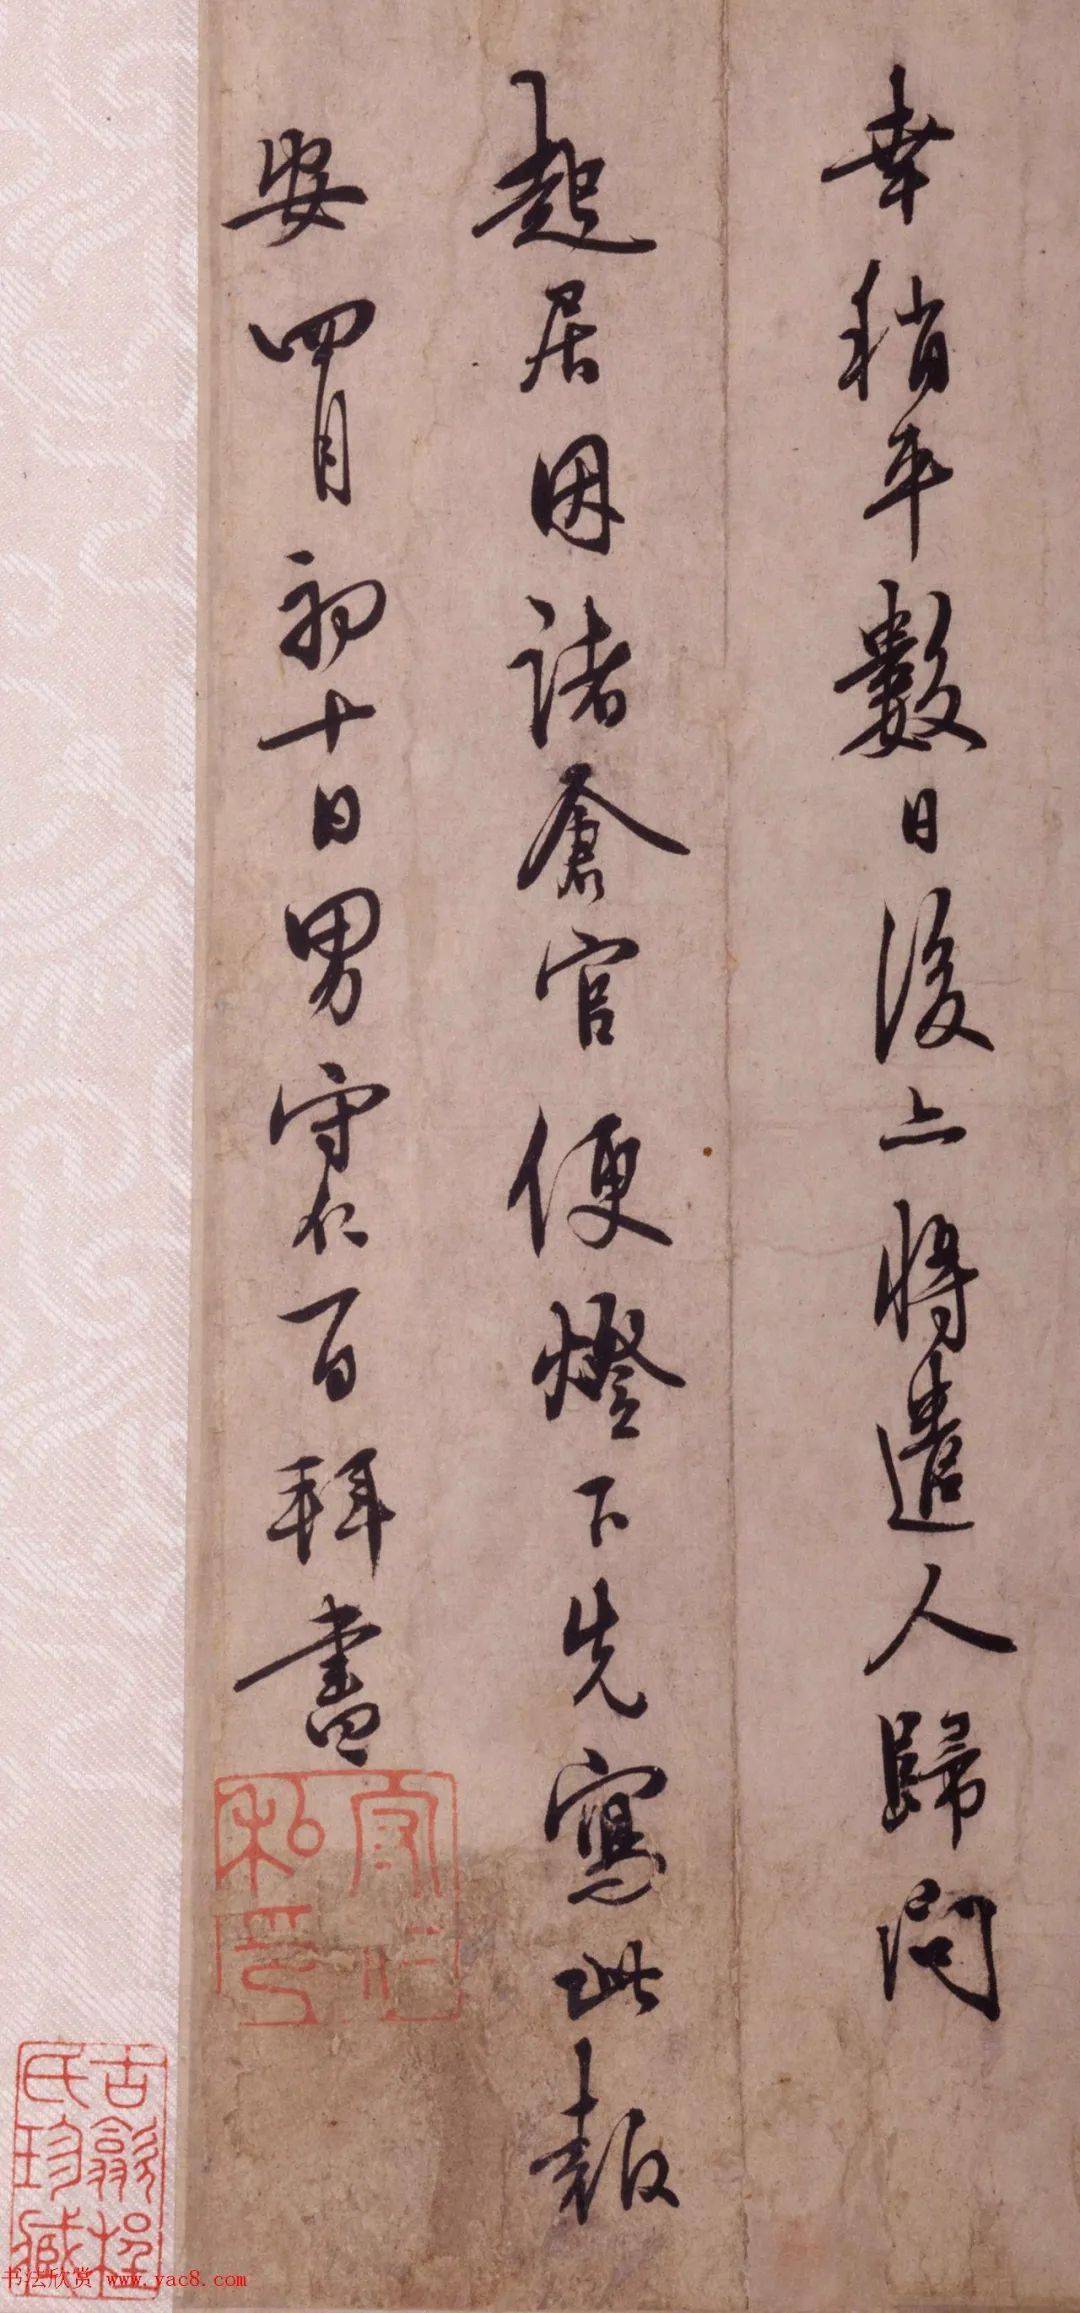 幸稍平數日後亦將遣人歸問
起居因諸倉官便燈下先寫此報
安四月初十日男守仁百拜書
私印
古歙程氏珍藏
书法欣赏 www.yac8.com